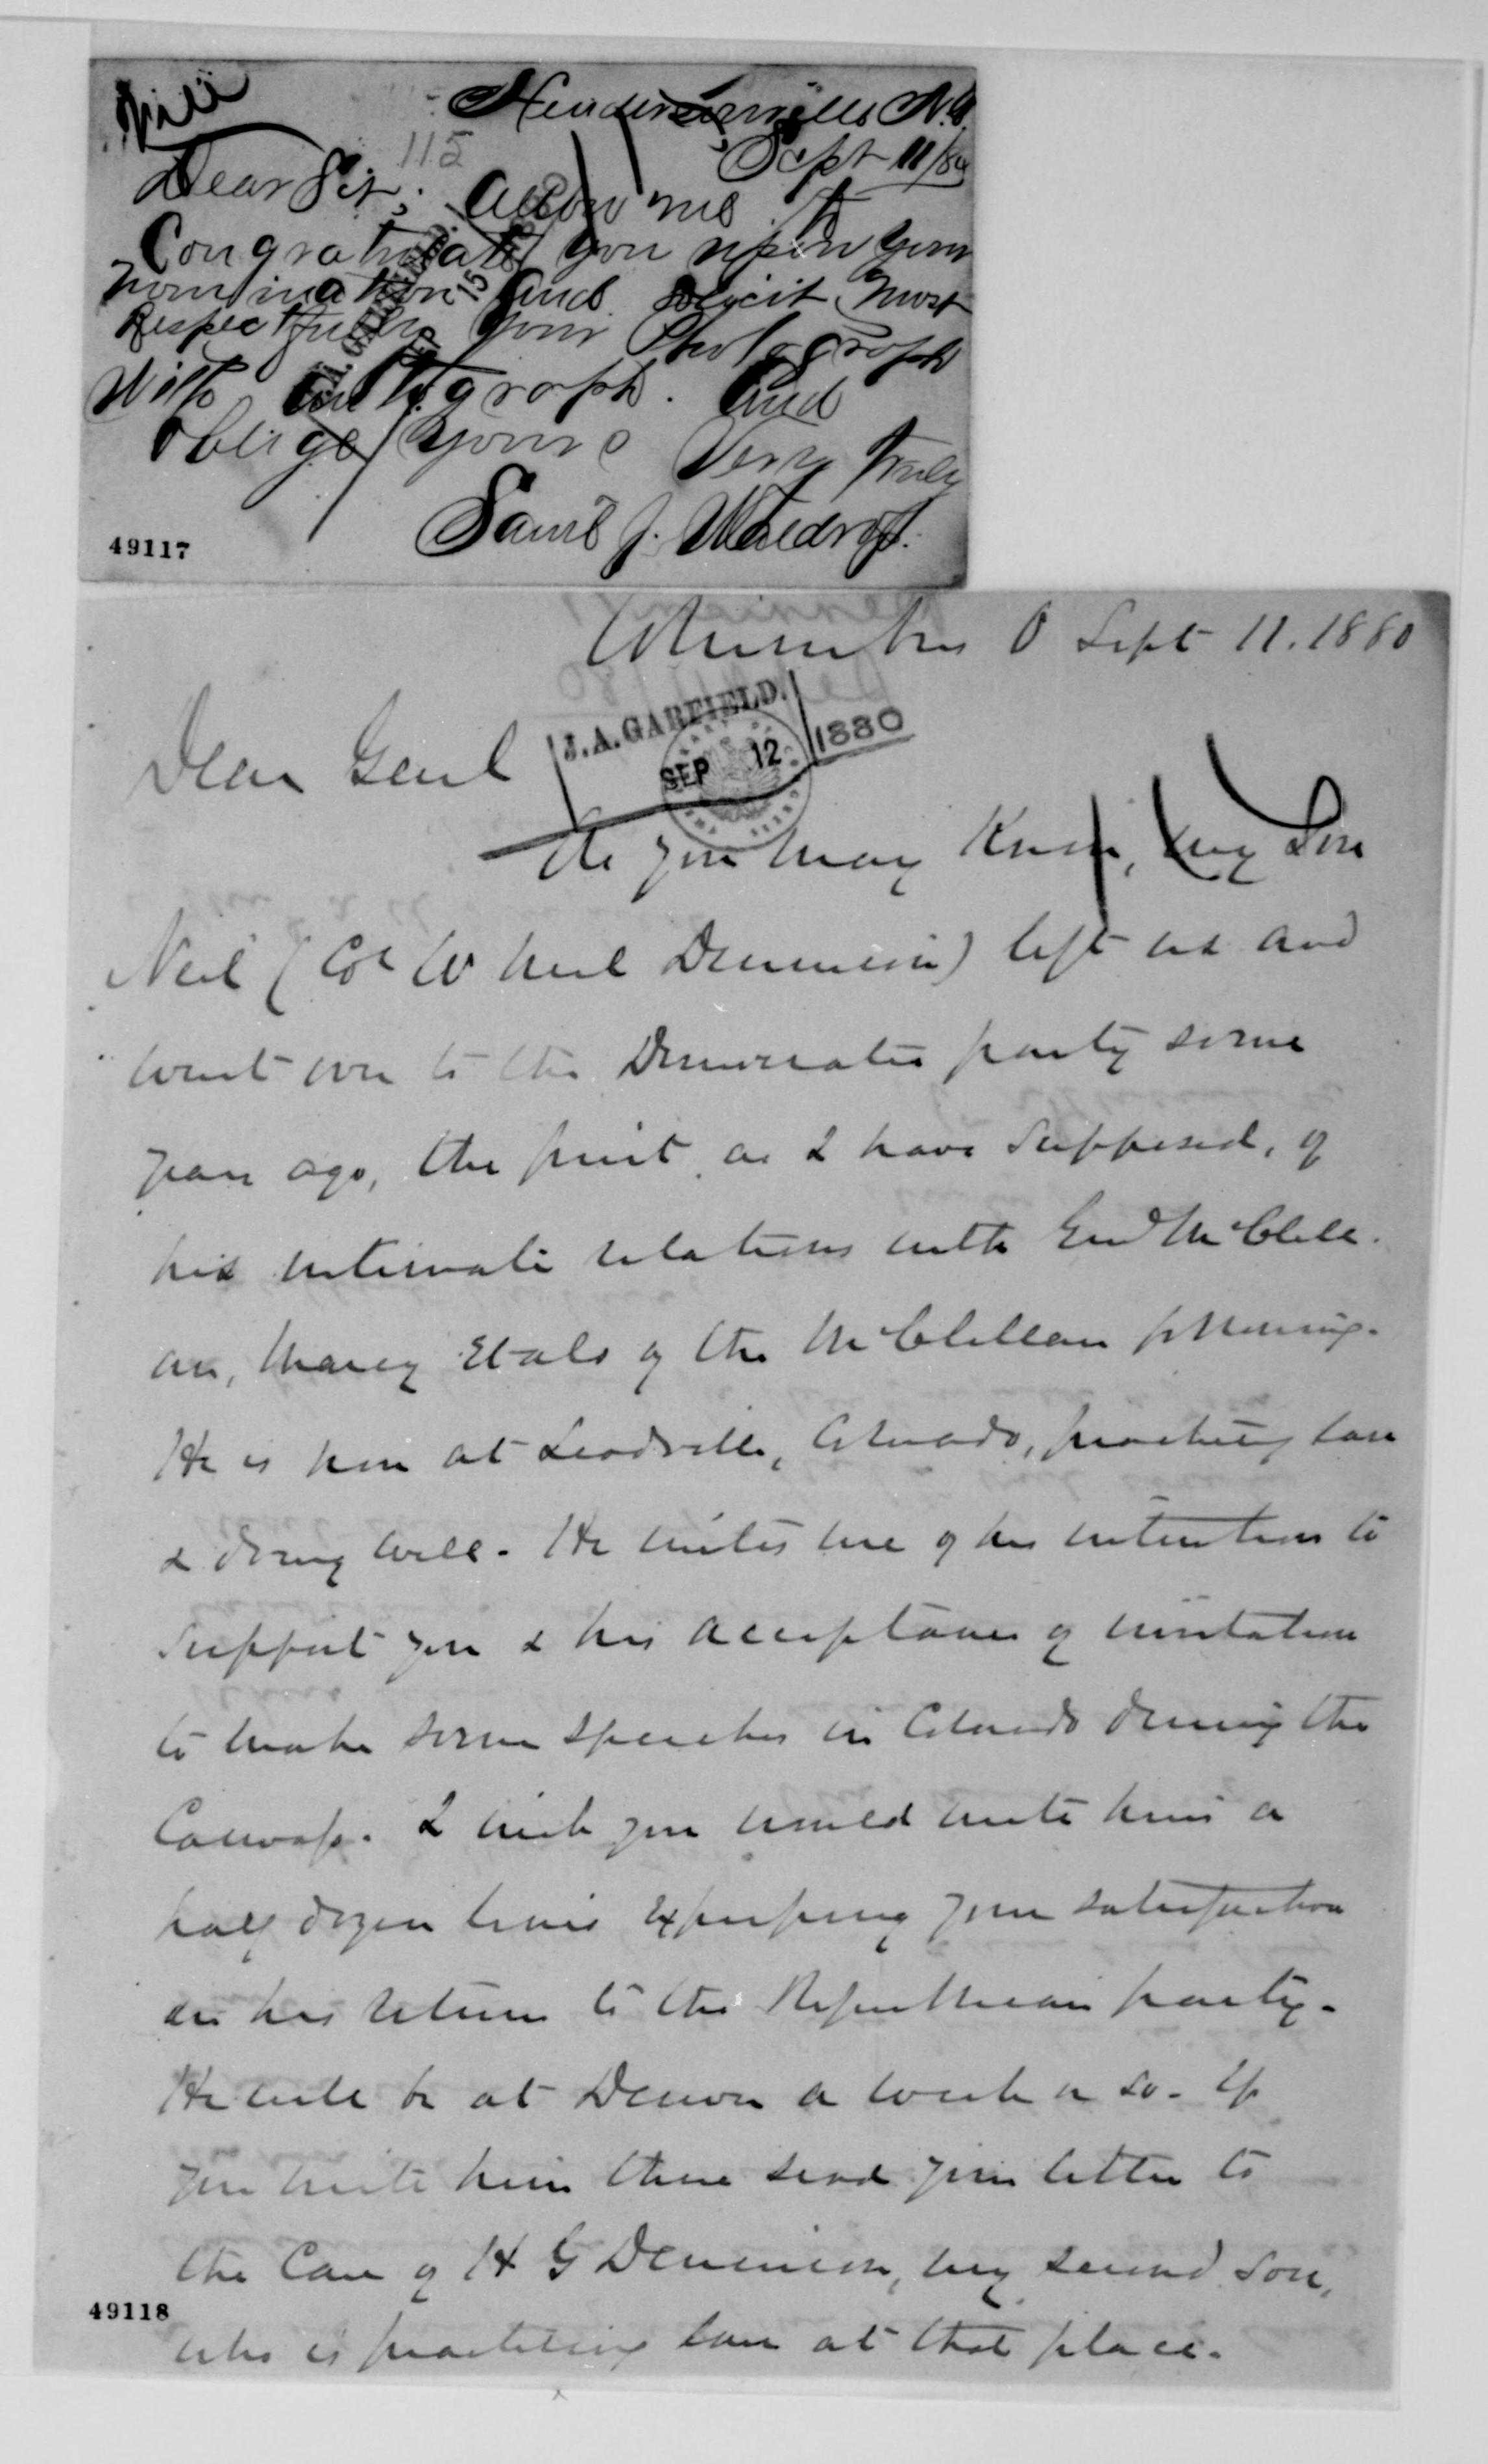 Hendersonville N.C.
Sept 11/80
115
Dear Sir; Allow me to
Congratulate you upon your
nomination and solicit most
Respectfully your Photograph
with autograph. And
oblige yours Very Truly
Saml J.
49117
Columbus O Sept 11. 1880
J. A. GARFIELD.
SEP 12 1880
Dear Genl
As you may know, my son
Neil (Col W Neil Dennison) left us and
went over to the Democratic party some
years ago, the fruit as I have supposed, of
his intimate relations with Genl McClell-
an, Marcy et als of the McClellan following.
He is now at Leadville, Colorado, practicing law
& doing well. He writes me of his intention to
support you & his acceptance of invitation
to make some speeches in Colorado during the
Canvass. I wish you would write him a
half dozen lines expressing your satisfaction
in his return to the Republican party.
He will be at Denver a week or so. If
you write him there send your letter to
the Care of H G Dennison, my second son,
who is practicing law at that place.
49118